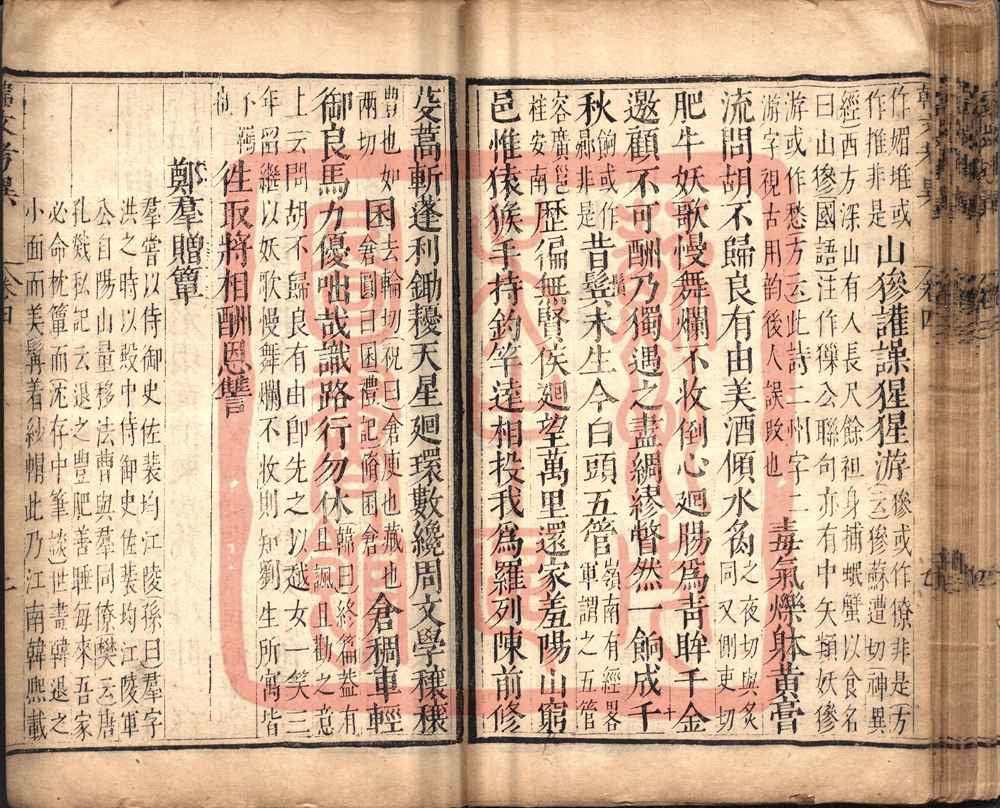 作媚堆或
作推非是
山㺑讙譟猩猩游
㺑或作僚非是方
云㺑蘇遭切神異
經西方深山有人長尺餘袒身捕蝦蟹以食名
曰山㺑國語注作獠公聯句亦有中矢類妖㺑
游或作愁方云此詩二州字二
游字視古用韵後人誤改也
毒氣爍躰黃膏
流問胡不歸良有由美酒傾水炙
之夜切與炙
同又側吏切
肥牛妖歌慢舞爛不收倒心廻腸為青眸千金
邀顧不可酬乃獨遇之盡綢繆瞥然一餉成千
秋
餉或作
曏非是
昔鬢未生今白頭五管
嶺南有經畧
軍謂之五管
容廣邕
桂安南
歴徧無賢侯廻望萬里還家羞陽山窮
邑惟猿猴手持釣竿遠相投我為羅列陳前修
芟蒿斬蓬利鋤耰天星廻環數繞周文學穰穰
豐也如
兩切
囷
去輪切祝曰倉庾也藏也
倉圓曰囷禮記脩囷倉
倉稠車輕
御良馬力優咄哉識路行勿休
韓曰終篇蓋有
且諷且勸之意
上云問胡不歸良有由即先之以越女一笑三
年留繼以妖歌慢舞爛不收則知劉生所寓皆
往取將相酬恩讐
鄭羣贈簟
羣嘗以侍御史佐裴均江陵孫曰羣字
洪之時以殿中侍御史佐裴均江陵軍
公自陽山量移法曹與羣同僚樊云唐
孔戣私記云退之豐肥善睡每來吾家
必命枕簟而沈存中筆談世畫韓退之
小面而美髯着紗帽此乃江南韓熙載
韓文考異 卷四